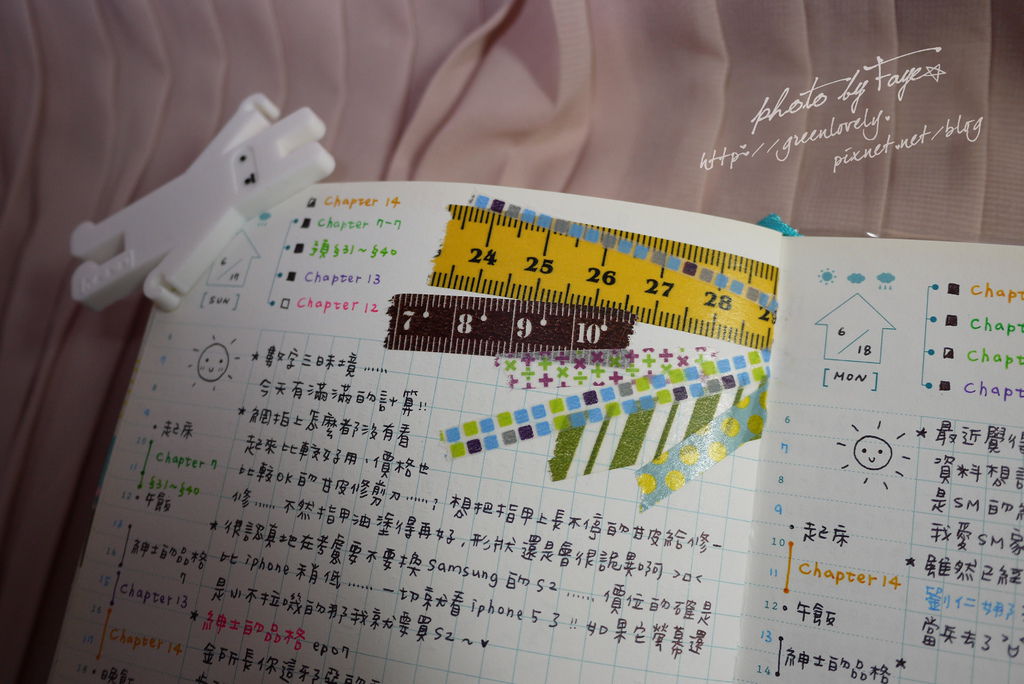 photo by Faye
http://greenlovely.
pixnet.net/blog
Chapter 14
Chapter 7-7
§31~§40
Chapter 13
Chapter 12
6/19
[SUN]
24 25 26 27 28
7 8 9 10
*數字三昧境……
今天有滿滿的計算!!
*網拍上怎麼都沒有看
起來比較好用,價格也
比較OK的甘皮修剪刀……?想把指甲上長不停的甘皮給修一
修……不然指甲油塗得再好,形狀還是會很詭異啊 >口<
*很認真地在考慮要不要換 Samsung 的 S2……價位的確是
比 iphone 稍低……一切就看 iphone 5 了!!如果它螢幕還
是小不拉嘰的那我就要買 S2~♥
*紳士的品格 ep07
起床
Chapter 7
§31~§40
午飯
紳士的品格
7
Chapter 13
Chapter 14
晚飯
6/18
[MON]
6
7
8
9
10
11
12
13
14
起床
Chapter 14
午飯
紳士的品格
*最近覺得
資料想
是SM的
我愛SM家
*雖然已經